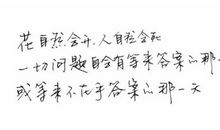 花自然会开,人自然会死
一切问题自会有等来答案的那
或等来不在乎答案的那一天